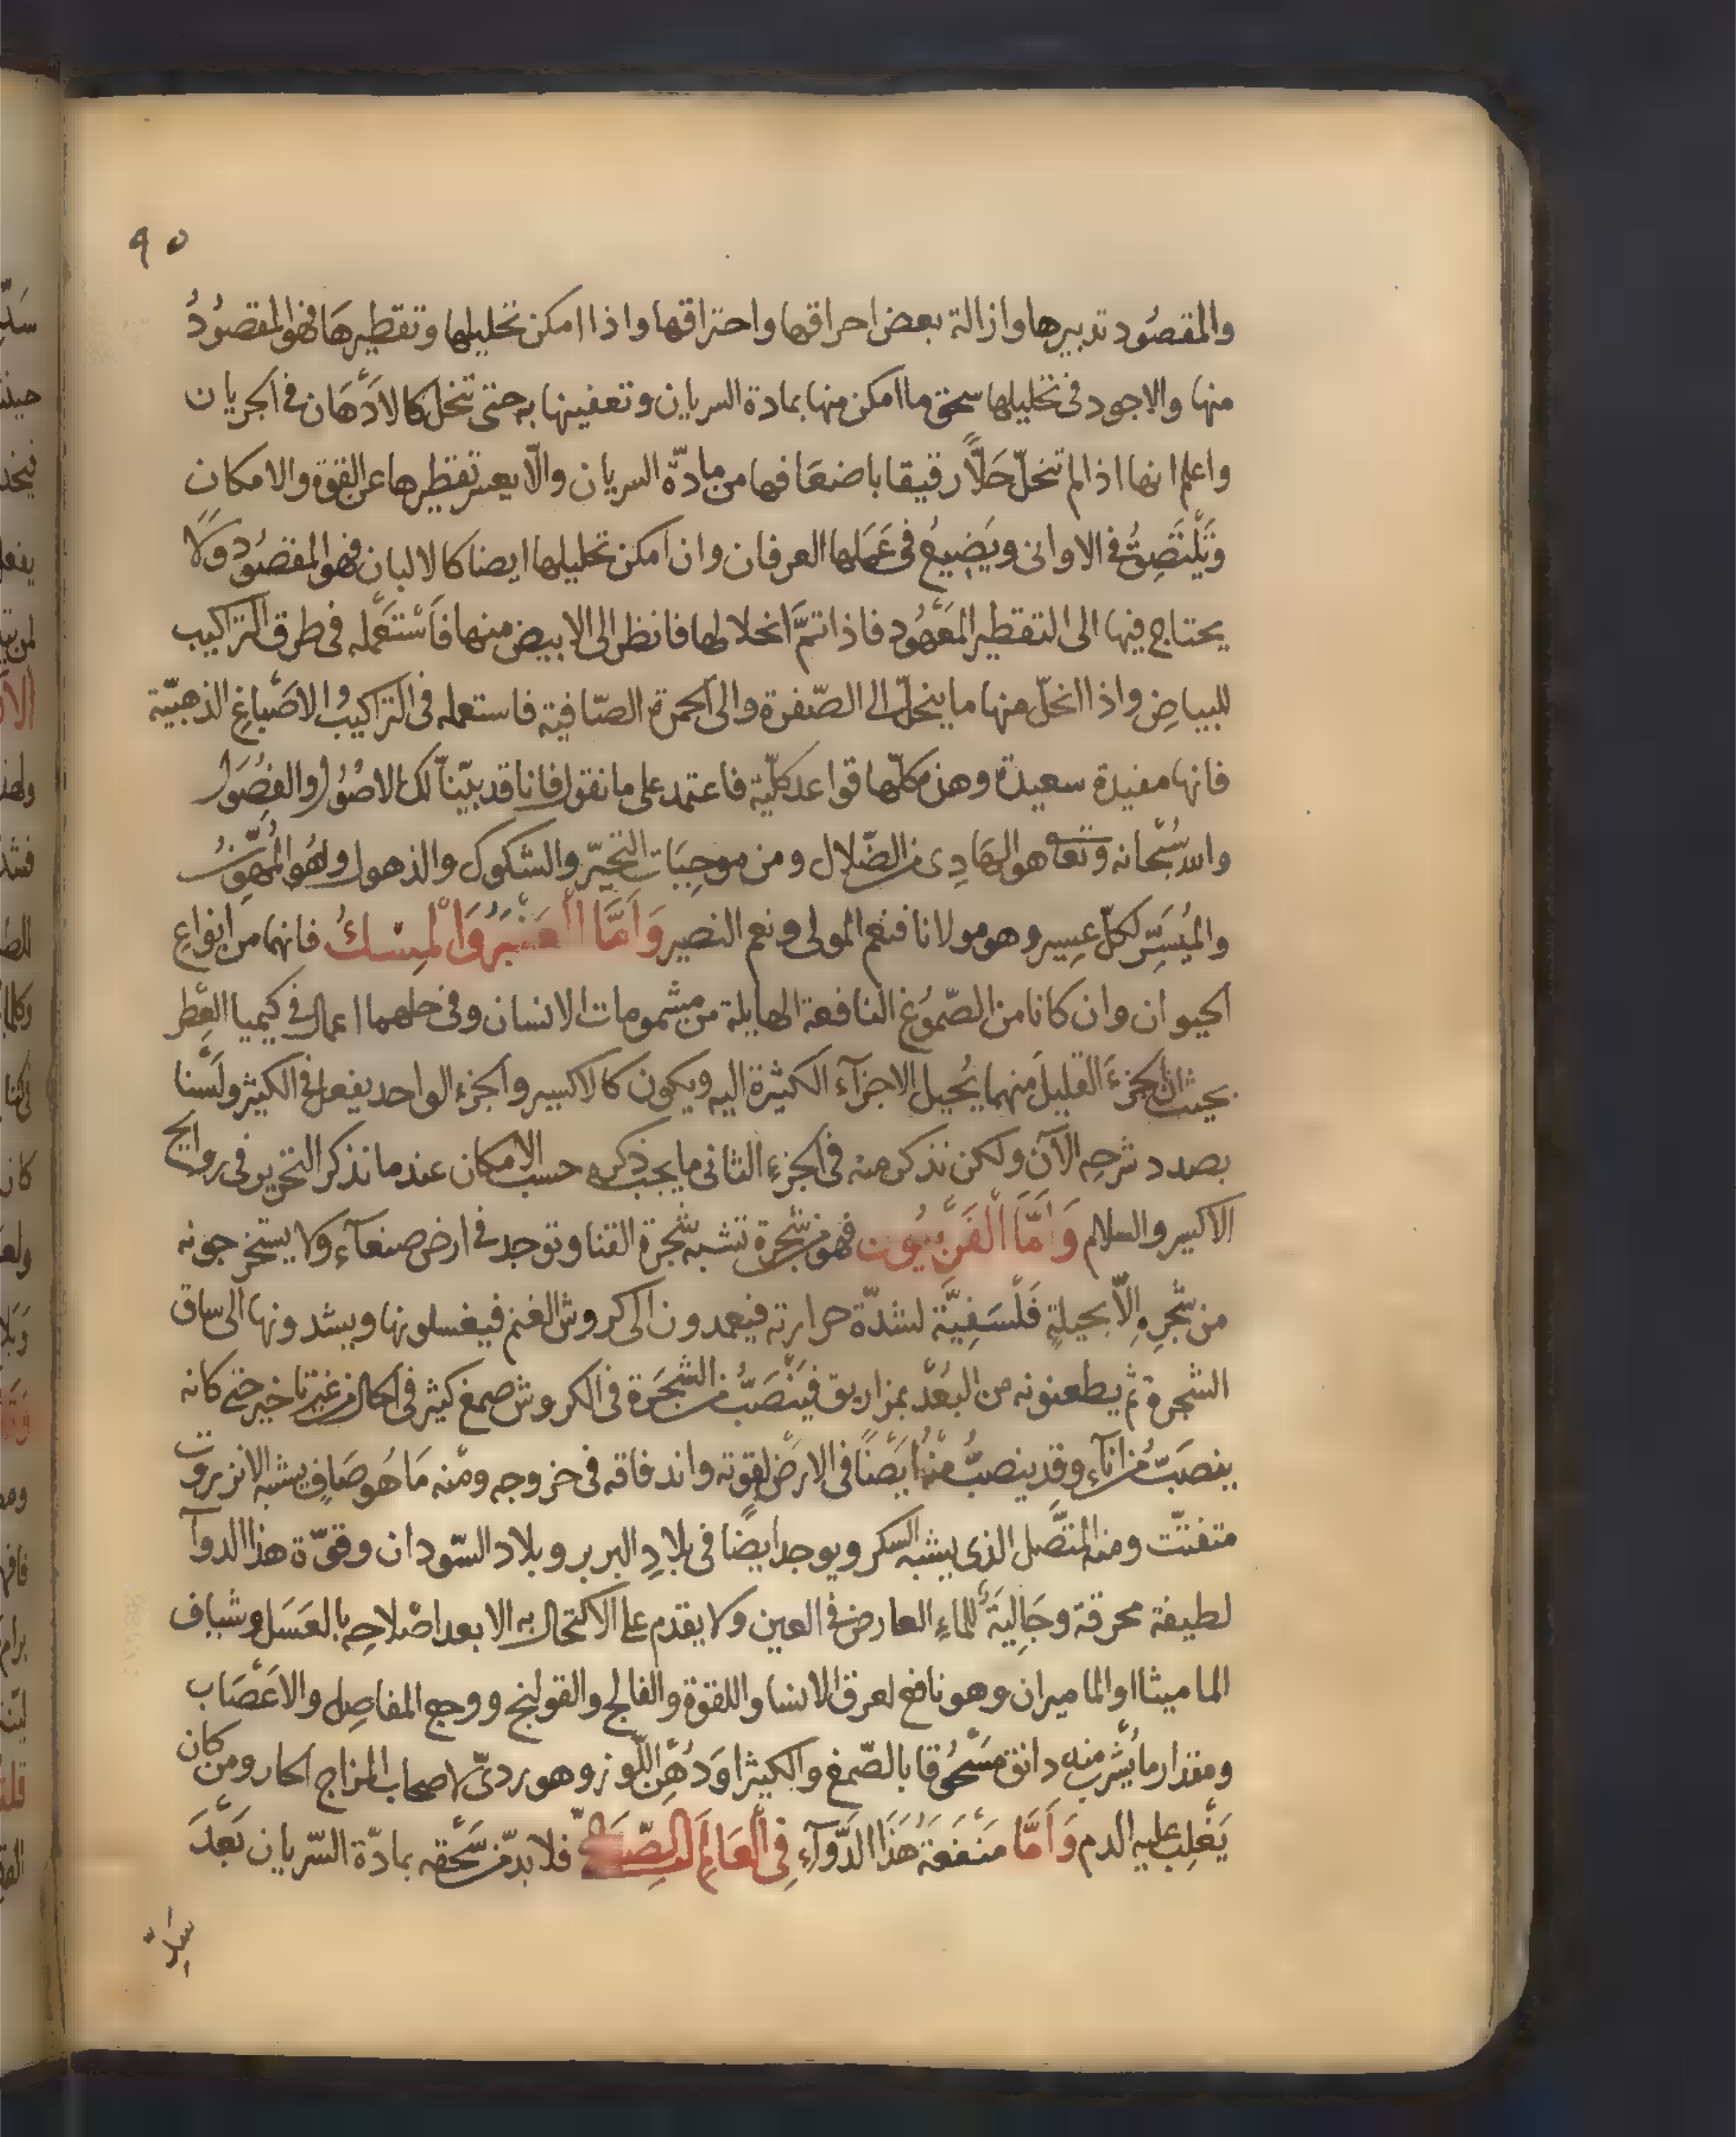 ٩٥
والمقصُود تدبيرها وازالة بعض احراقها واحتراقها واذا امكن تحليلها وتقطيرهَا فهو المقصُودُ
منها والاجود فى تحليلها سحق ما امكن منها بمادة السريان وتعفينها به حتى تنحل كالادْهَان فى الجريان
واعلم انها اذا لم تنحلّ حَلاًّ رقيقا باضعَافها من مادّة السريان والّا يعسر تقطيرها عن القوة والامكان
وَتَلْتَصِقُ فى الاوانى ويَضِيعُ فى عَمَلها العرفان وان امكن تحليلها ايضا كالالبان فهو المقصُود وَلَا
يحتاج فيها الى التقطير المَعْهُود فاذا تمَّ انحلالها فانظر الى الابيض منها فَاسْتَعْمله فى طرق التراكيب
للبياضِ واذا انحلّ منها ما ينحلّ الى الصّفرة والى الحمرة الصّافية فاستعمله فى التراكيب والاصْباغِ الذهبيّة
فانها مفيدة سعيدة وهذه كلّها قواعد كلّية فاعتمد على ما نقول فانا قد بيّنّا لك الاصُوْل والفصُوَل
والله سُبْحانه وتعا هو الهَادِى من الضّلال ومن موجِبَات التحيّر والشكوك والذهول ولهُو المُهوّنُ
والمُيَسِّر لكلّ عسِير وهو مولانا فنعم المولى ونعم النصير وَاَمَّا الْعَنْبَرُ وَالْمِسْكُ فانهما من انواعِ
الحيوان وان كانا من الصّمُوغ النافعة الهايلة من مشمومات الانسان وفى حلهما اعمال فى كيميا العِطْر
بحيث ان الجزءَ القليلَ منهما يُحيل الاجزآءَ الكثيرة اليه ويكون كالاكسير والجزء الواحد يفعل فى الكثير ولَسْنا
بصدد شرحِه الآن ولكن نذكر منه فى الجزء الثانى ما يجب ذكره حسب الامكان عندما نذكر التخزين فى روايح
الاكسير والسلام وَاَمَّا الْفَرْبِيُونِ فهو من شجرة تشبه شجرة القنا وتوجد فى ارض صنعآء ولا يستخرجونه
من شجرِهِ الّا بحيلةٍ فَلْسَفِيَّة لشدّة حرارته فيعمدون الى كروش الغنم فيغسلونها ويشدونها الى ساق
الشجرة ثم يطعنونه من البُعْد بمزاريق فيَنْصَبُّ من الشجَرة فى الكروش صمغ كثير فى الحال من غير تاخير حتى كانه
ينصَبُّ من انآء وقد ينصبُّ منْهُ ايَضًا فى الارض لقوته واندفاقه فى خروجه ومنه مَا هُو صَافٍ يشبه الانزروت
متفتّت ومنه المتّصل الذى يشبه السكر ويوجد ايضًا فى بلادِ البربر وبلاد السّودان وقوّة هذا الدوآ
لطيفة محرقة وجَالِيَةٌ للماءِ العارض فى العين ولا يقدم على الاكتحال به الا بعد اصْلاحِه بالعَسَل وشياف
الماميثا او الماميران وهو نافع لعرق الانسا واللقوة والفالج والقولنج ووجع المفاصِل والاعْصَاب
ومقدار ما يُشْرب منه دانق مَسْحُوقا بالصّمغ والكثيرا وَدُهْنِ اللّوز وهو ردىّ لاصحاب المزاج الحار ومن كان
يَغْلِب عليه الدم وَاَمَّا مَنْفَعَةُ هَذَا الدَّوَآءِ فِى الْعَالَمِ الصِّنَاعِىّ فلا بدّ من سَحْقه بمادّة السّريان بَعْدَ